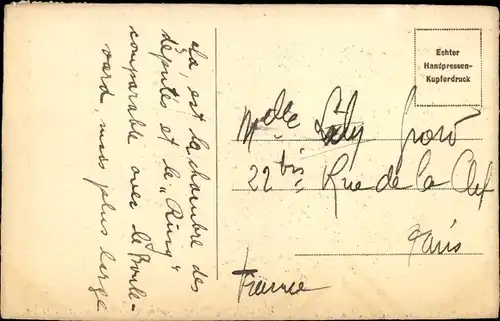 là, est la chambre des
députés et le „Ring“
comparable avec le Boule-
vard, mais plus large
Echter
Handpressen-
Kupferdruck
Melle Lily
22 bis Rue de la Clef
Paris
France